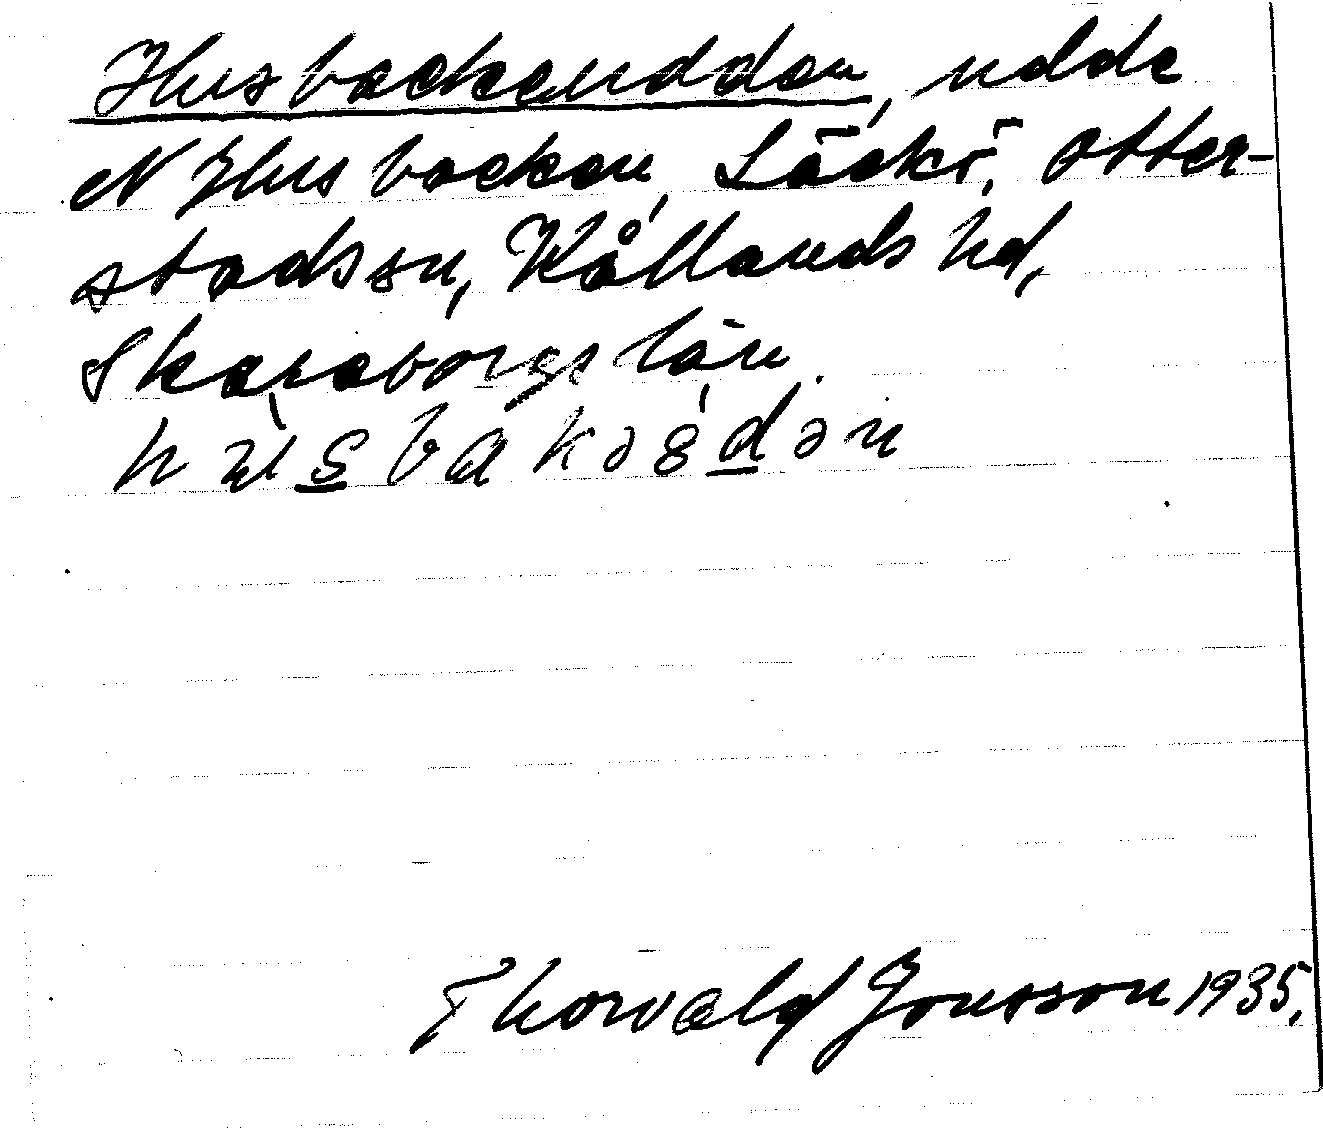 Husbackeudden, udde
N Husbacken, Läckö, Otter-
stads sn, Kållands hd,
Skaraborgs län.
Thorvald Jonsson 1935.